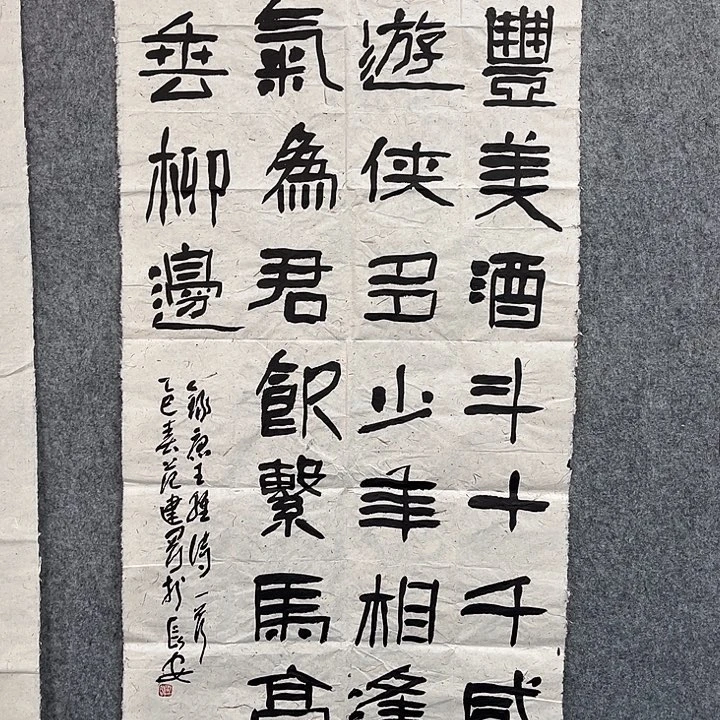 豐美酒斗十千咸
遊俠多少年相逢
氣為君飲繫馬高
垂柳邊
錄唐王維詩一首
乙巳春范建於長安